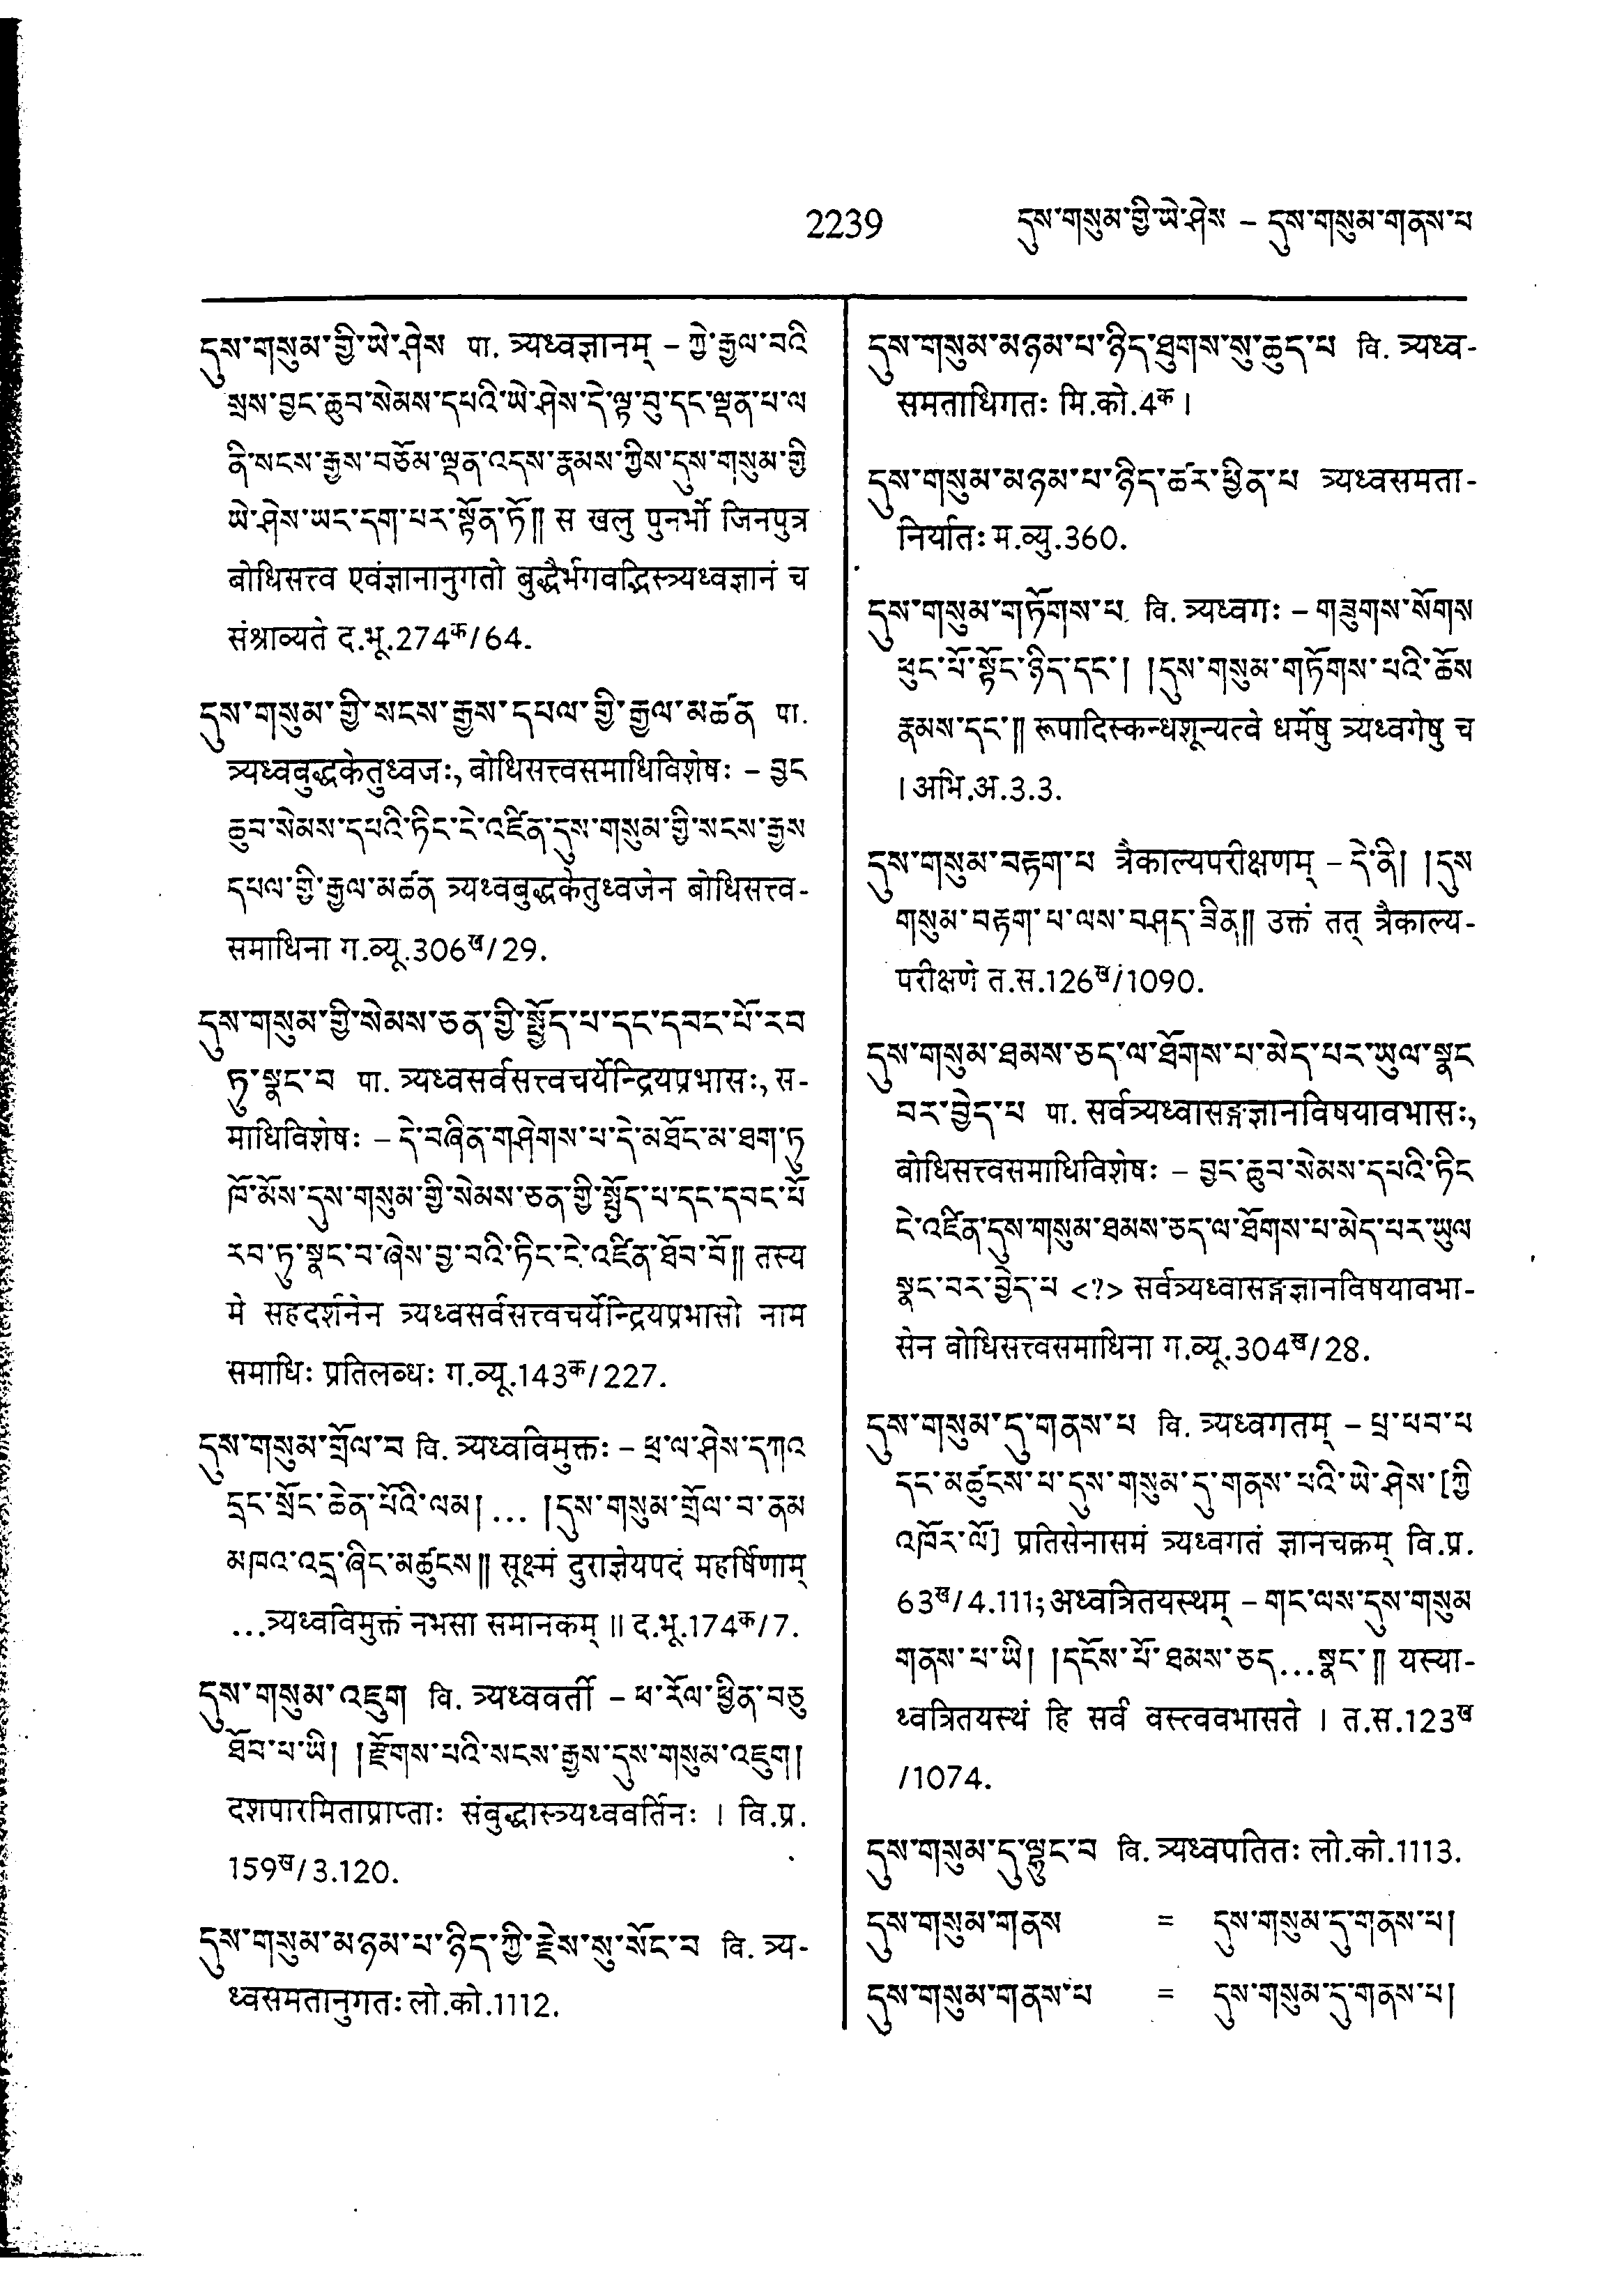 2239
དུས་གསུམ་གྱི་ཡེ་ཤེས – དུས་གསུམ་གནས་པ
དུས་གསུམ་གྱི་ཡེ་ཤེས पा. त्र्यध्वज्ञानम् – ཀྱེ་རྒྱལ་བའི
སྲས་བྱང་ཆུབ་སེམས་དཔའི་ཡེ་ཤེས་དེ་ལྟ་བུ་དང་ལྡན་པ་ལ
ནི་སངས་རྒྱས་བཅོམ་ལྡན་འདས་རྣམས་ཀྱིས་དུས་གསུམ་གྱི
ཡེ་ཤེས་ཡང་དག་པར་སྟོན་ཏོ༎ स खलु पुनर्भो जिनपुत्र
बोधिसत्त्व एवंज्ञानानुगतो बुद्धैर्भगवद्भिस्त्र्यध्वज्ञानं च
संश्राव्यते द.भू.274क/64.
དུས་གསུམ་གྱི་སངས་རྒྱས་དཔལ་གྱི་རྒྱལ་མཚན पा.
त्र्यध्वबुद्धकेतुध्वजः, बोधिसत्त्वसमाधिविशेषः – བྱང
ཆུབ་སེམས་དཔའི་ཏིང་ངེ་འཛིན་དུས་གསུམ་གྱི་སངས་རྒྱས
དཔལ་གྱི་རྒྱལ་མཚན त्र्यध्वबुद्धकेतुध्वजेन बोधिसत्त्व-
समाधिना ग.व्यू.306ख/29.
དུས་གསུམ་གྱི་སེམས་ཅན་གྱི་སྤྱོད་པ་དང་དབང་པོ་རབ
ཏུ་སྣང་བ पा. त्र्यध्वसर्वसत्त्वचर्येन्द्रियप्रभासः, स-
माधिविशेषः – དེ་བཞིན་གཤེགས་པ་དེ་མཐོང་མ་ཐག་ཏུ
ཁོ་མོས་དུས་གསུམ་གྱི་སེམས་ཅན་གྱི་སྤྱོད་པ་དང་དབང་པོ
རབ་ཏུ་སྣང་བ་ཞེས་བྱ་བའི་ཏིང་ངེ་འཛིན་ཐོབ་བོ༎ तस्य
मे सहदर्शनेन त्र्यध्वसर्वसत्त्वचर्येन्द्रियप्रभासो नाम
समाधिः प्रतिलब्धः ग.व्यू.143क/227.
དུས་གསུམ་གྲོལ་བ वि. त्र्यध्वविमुक्तः – ཕྲ་ལ་ཤེས་དཀའ
དྲང་སྲོང་ཆེན་པོའི་ལམ། ... །དུས་གསུམ་གྲོལ་བ་ནམ
མཁའ་འདྲ་ཞིང་མཚུངས༎ सूक्ष्मं दुराज्ञेयपदं महर्षिणाम्
...त्र्यध्वविमुक्तं नभसा समानकम् ॥ द.भू.174क/7.
དུས་གསུམ་འཇུག वि. त्र्यध्ववर्ती – ཕ་རོལ་ཕྱིན་བཅུ
ཐོབ་པ་ཡི། །རྫོགས་པའི་སངས་རྒྱས་དུས་གསུམ་འཇུག།
दशपारमिताप्राप्ताः संबुद्धास्त्र्यध्ववर्तिनः । वि.प्र.
159ख/3.120.
དུས་གསུམ་མཉམ་པ་ཉིད་ཀྱི་རྗེས་སུ་སོང་བ वि. त्र्य-
ध्वसमतानुगतः लो.को.1112.
དུས་གསུམ་མཉམ་པ་ཉིད་ཐུགས་སུ་ཆུད་པ वि. त्र्यध्व-
समताधिगतः मि.को.4क ।
དུས་གསུམ་མཉམ་པ་ཉིད་ཚར་ཕྱིན་པ त्र्यध्वसमता-
निर्यातः म.व्यु.360.
དུས་གསུམ་གཏོགས་པ वि. त्र्यध्वगः – གཟུགས་སོགས
ཕུང་པོ་སྟོང་ཉིད་དང་། །དུས་གསུམ་གཏོགས་པའི་ཆོས
རྣམས་དང་༎ रूपादिस्कन्धशून्यत्वे धर्मेषु त्र्यध्वगेषु च
। अभि.अ.3.3.
དུས་གསུམ་བརྟག་པ त्रैकाल्यपरीक्षणम् – དེ་ནི། །དུས
གསུམ་བརྟག་པ་ལས་བཤད་ཟིན༎ उक्तं तत् त्रैकाल्य-
परीक्षणे त.स.126ख/1090.
དུས་གསུམ་ཐམས་ཅད་ལ་ཐོགས་པ་མེད་པར་ཡུལ་སྣང
བར་བྱེད་པ पा. सर्वत्र्यध्वासङ्गज्ञानविषयावभासः,
बोधिसत्त्वसमाधिविशेषः – བྱང་ཆུབ་སེམས་དཔའི་ཏིང
ངེ་འཛིན་དུས་གསུམ་ཐམས་ཅད་ལ་ཐོགས་པ་མེད་པར་ཡུལ
སྣང་བར་བྱེད་པ <?> सर्वत्र्यध्वासङ्गज्ञानविषयावभा-
सेन बोधिसत्त्वसमाधिना ग.व्यू.304ख/28.
དུས་གསུམ་དུ་གནས་པ वि. त्र्यध्वगतम् – པྲ་ཕབ་པ
དང་མཚུངས་པ་དུས་གསུམ་དུ་གནས་པའི་ཡེ་ཤེས་[ཀྱི
འཁོར་ལོ] प्रतिसेनासमं त्र्यध्वगतं ज्ञानचक्रम् वि.प्र.
63ख/4.111; अध्वत्रितयस्थम् – གང་ལས་དུས་གསུམ
གནས་པ་ཡི། །དངོས་པོ་ཐམས་ཅད...སྣང་༎ यस्या-
ध्वत्रितयस्थं हि सर्वं वस्त्ववभासते । त.स.123ख
/1074.
དུས་གསུམ་དུ་ལྷུང་བ वि. त्र्यध्वपतितः लो.को.1113.
དུས་གསུམ་གནས = དུས་གསུམ་དུ་གནས་པ།
དུས་གསུམ་གནས་པ = དུས་གསུམ་དུ་གནས་པ།